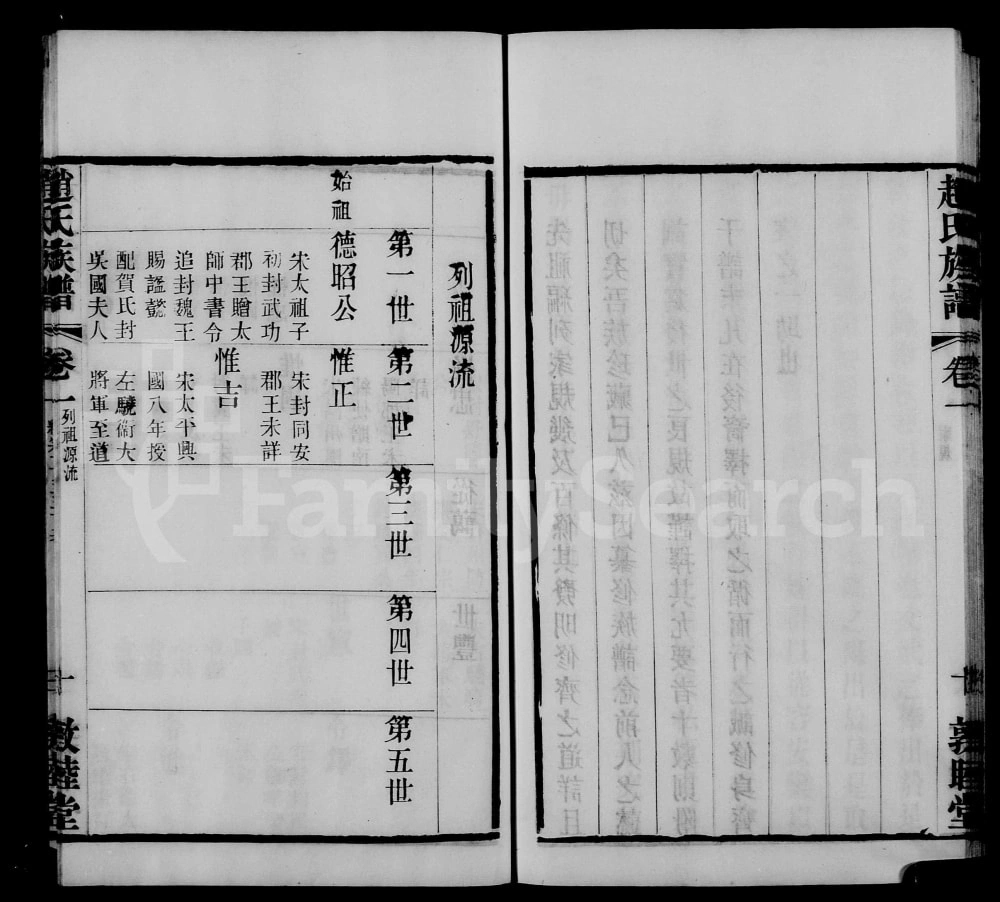 趙氏族譜
卷一
敦睦堂
列祖源流
第一世
第二世
第三世
第四世
第五世
始祖
德昭公
宋太祖子
初封武功
郡王贈太
師中書令
追封魏王
賜謚懿
配賀氏封
吳國夫人
惟正
宋封同安
郡王未詳
惟吉
宋太平興
國八年授
左驍衛大
將軍至道
趙氏族譜
卷一
列祖源流
敦睦堂
FamilySearch